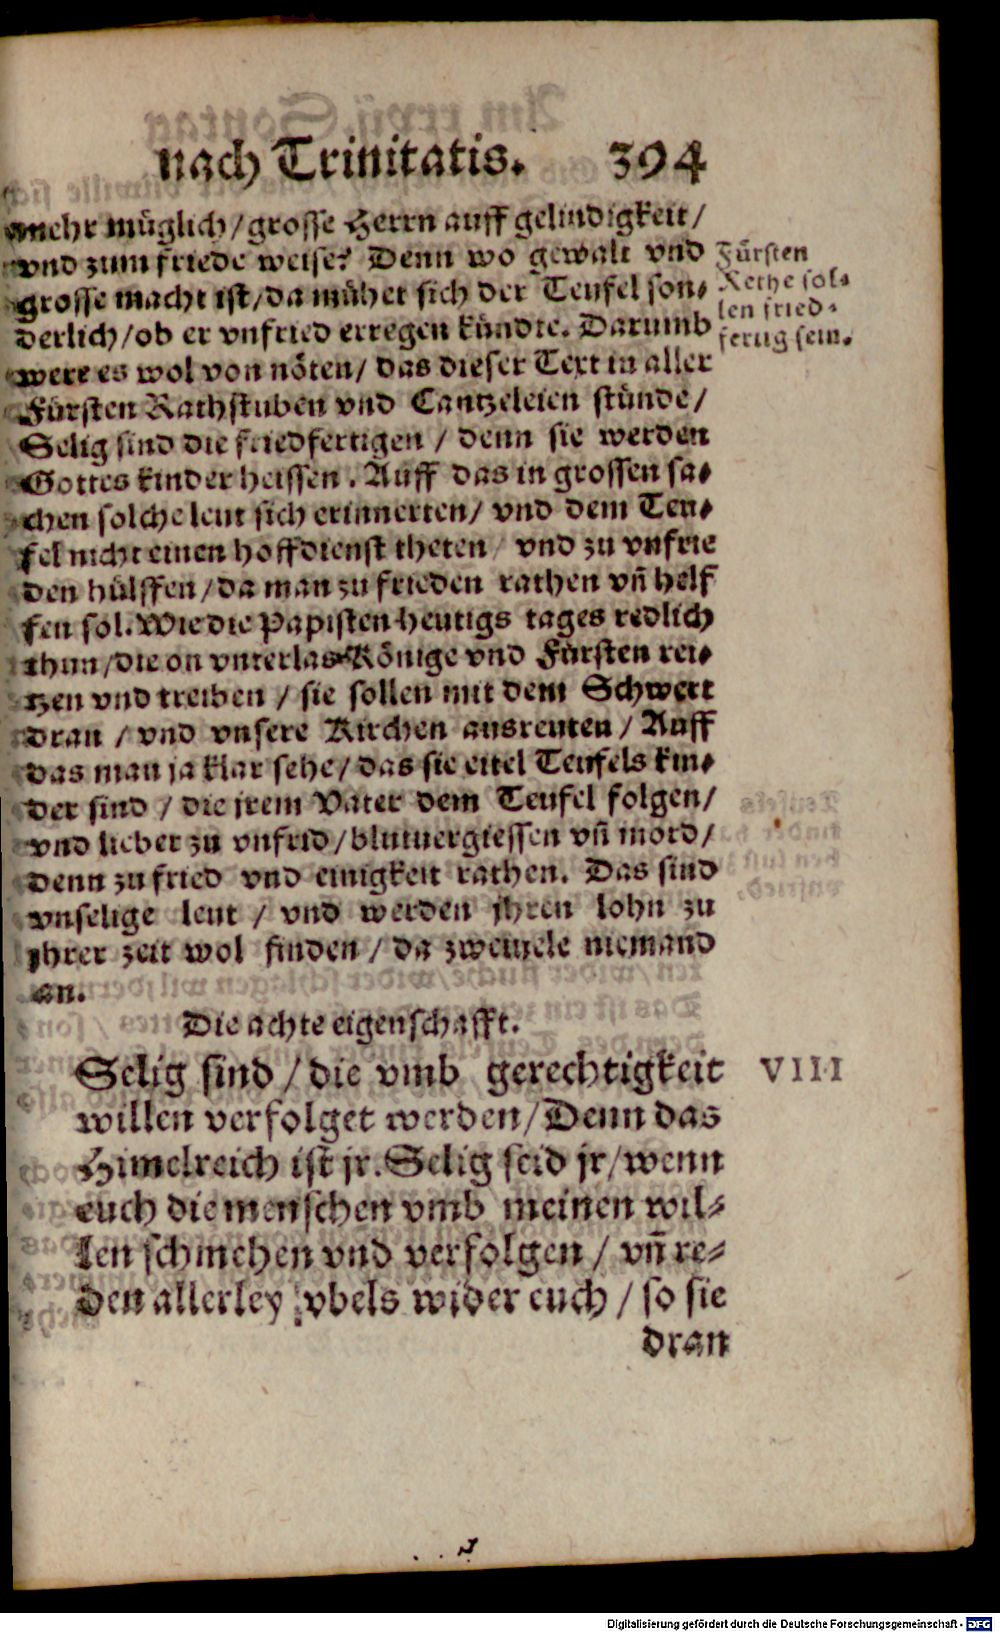 nach Trinitatis. 394
mehr müglich/grosse Herrn auff gelindigkeit/
vnd zum friede weise? Denn wo gewalt vnd
grosse macht ist/da mühet sich der Teufel son⸗
derlich/ob er vnfried erregen kündte. Darumb
were es wol von nöten/ das dieser Text in aller
Fürsten Rathstuben vnd Cantzeleien stünde/
Selig sind die friedfertigen / denn sie werden
Gottes kinder heissen. Auff das in grossen sa⸗
chen solche leut sich erinnerten/ vnd dem Teu⸗
fel nicht einen hoffdienst theten / vnd zu vnfrie
den hülffen/da man zu frieden rathen vn̄ helf
fen sol. Wie die Papisten heutigs tages redlich
thun/die on vnterlas Könige vnd Fürsten rei⸗
tzen vnd treiben / sie sollen mit dem Schwert
dran / vnd vnsere Kirchen ausreuten / Auff
das man ja klar sehe/das sie eitel Teufels kin⸗
der sind / die jrem Vater dem Teufel folgen/
vnd lieber zu vnfrid/blutuergiessen vn̄ mord/
denn zu fried vnd einigkeit rathen. Das sind
vnselige leut / vnd werden jhren lohn zu
jhrer zeit wol finden / da zweiuele niemand
an.
Fürsten
Rethe sol⸗
len fried⸗
fertig sein.
Die achte eigenschafft.
Selig sind / die vmb gerechtigkeit
willen verfolget werden/Denn das
Himelreich ist jr. Selig seid jr/wenn
euch die menschen vmb meinen wil⸗
len schmehen vnd verfolgen / vn̄ re⸗
den allerley vbels wider euch / so sie
dran
VIII
Digitalisierung gefördert durch die Deutsche Forschungsgemeinschaft - DFG